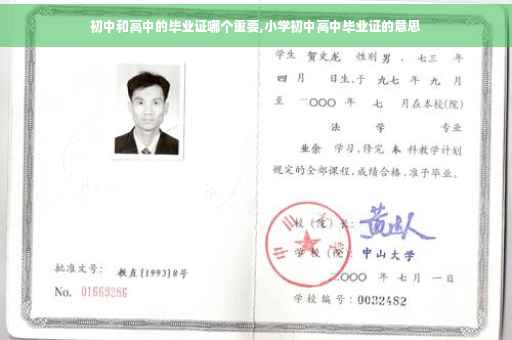 初中和高中的毕业证哪个重要,小学初中高中毕业证的意思
学生 贺文龙 性别 男 、七三 年
四 月 日生,于 九七 年 九 月
至 二〇〇〇 年 七 月在本校(院)
法 学 专业
业余 学习,修完 本 科教学计划
规定的全部课程,成绩合格,准予毕业。
校(院)长:
学校(院): 中山大学
二〇〇〇 年 七 月 一 日
学校编号: 0032482
批准文号: 教直[1993]8号
No. 01669286